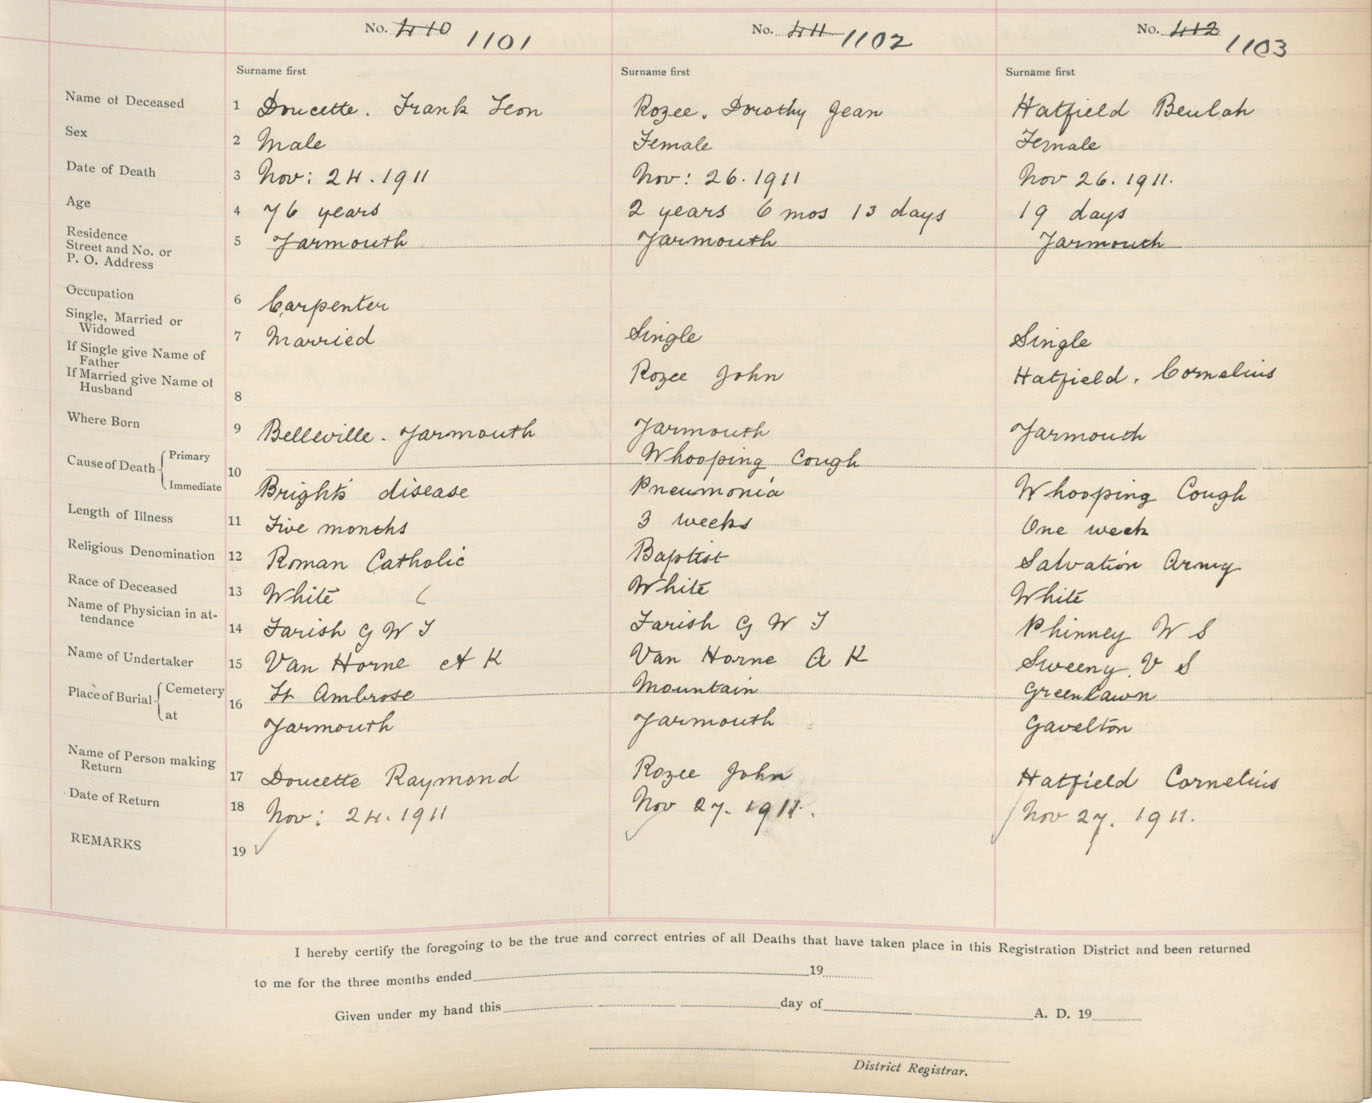 No. 410 1101 No. 411 1102 No. 412 1103
Surname first Surname first Surname first
Name of Deceased 1 Doucette. Frank Leon Rozee. Dorothy Jean Hatfield Beulah
Sex 2 Male Female Female
Date of Death 3 Nov: 24. 1911 Nov: 26. 1911 Nov 26. 1911.
Age 4 76 years 2 years 6 mos 13 days 19 days
Residence
Street and No. or 5 Yarmouth Yarmouth Yarmouth
P. O. Address
Occupation 6 Carpenter
Single, Married or
Widowed 7 Married Single Single
If Single give Name of
Father
If Married give Name of Rozee John Hatfield. Cornelius
Husband 8
Where Born 9 Belleville. Yarmouth Yarmouth Yarmouth
Cause of Death Primary 10 Whooping Cough
Immediate Bright's disease Pneumonia Whooping Cough
Length of Illness 11 Five months 3 weeks One week
Religious Denomination 12 Roman Catholic Baptist Salvation Army
Race of Deceased 13 White White White
Name of Physician in at-
tendance 14 Farish G W T Farish G W T Phinney W S
Name of Undertaker 15 Van Horne A K Van Horne A K Sweeny. V S
Place of Burial Cemetery 16 St Ambrose Mountain Greenlawn
at Yarmouth Yarmouth Gavelton
Name of Person making
Return 17 Doucette Raymond Rozee John Hatfield Cornelius
Date of Return 18 Nov: 24. 1911 Nov 27. 1911. Nov 27. 1911.
REMARKS 19
I hereby certify the foregoing to be the true and correct entries of all Deaths that have taken place in this Registration District and been returned
to me for the three months ended 19
Given under my hand this day of A. D. 19
District Registrar.